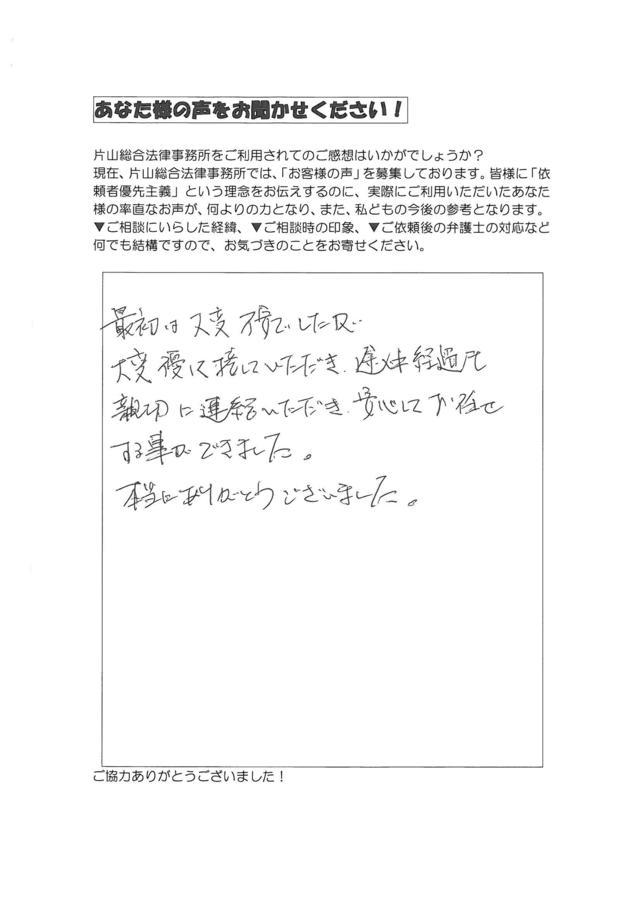 あなた様の声をお聞かせください！
片山総合法律事務所をご利用されてのご感想はいかがでしょうか？
現在、片山総合法律事務所では、「お客様の声」を募集しております。皆様に「依
頼者優先主義」という理念をお伝えするのに、実際にご利用いただいたあなた
様の率直なお声が、何よりの力となり、また、私どもの今後の参考となります。
▼ご相談にいらした経緯、▼ご相談時の印象、▼ご依頼後の弁護士の対応など
何でも結構ですので、お気づきのことをお寄せください。
最初は大変不安でしたが
大変優しく接していただき、途中経過も
親切に連絡いただき、安心してお任せ
する事ができました。
本当にありがとうございました。
ご協力ありがとうございました！